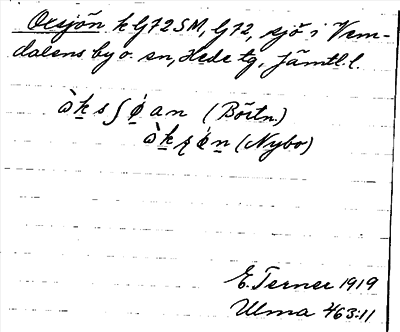 Oxsjön k G72SM, G72, sjö i Vem-
dalens by o. sn, Hede tg, Jämtl. l.
òksʃøan (Börtn.)
òksøn (Nybo)
E. Terner 1919
Ulma 463:11